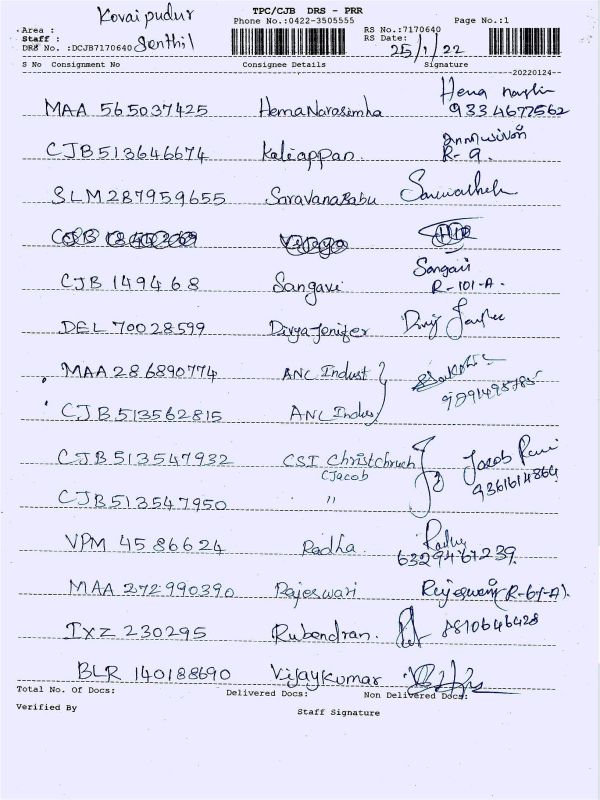 Kovaipudur
TPC/CJB DRS - PRR
Phone No.:0422-3505555
Page No.:1
Area :
Staff : Senthil
DRS No. :DCJB7170640
RS No.:7170640
RS Date: 25/1/22
S No Consignment No Consignee Details Signature
--20220124--
MAA 565037425 HemaNarasimha Hema
9334677562
CJB513646674 Kaliappan
R-9.
SLM287959655 SaravanaBabu
CJB 149468 Sangavi Sangavi
R-101-A.
DEL 70028599 DivyaJenifer
MAA 286890774 ANC Indust
CJB513562815 ANC Indus
CJB513547932 CSI Christchruch Jacob
(Jacob 9361614864
CJB513547950 "
VPM 4586624 Radha Radha
6329467239.
MAA 272990390 Rajeswari Rajeswari (R-67-A).
IXZ 230295 Rubendran. 8810646428
BLR 140188690 Vijaykumar
Total No. of Docs: Delivered Docs: Non Delivered Docs:
Verified By Staff Signature